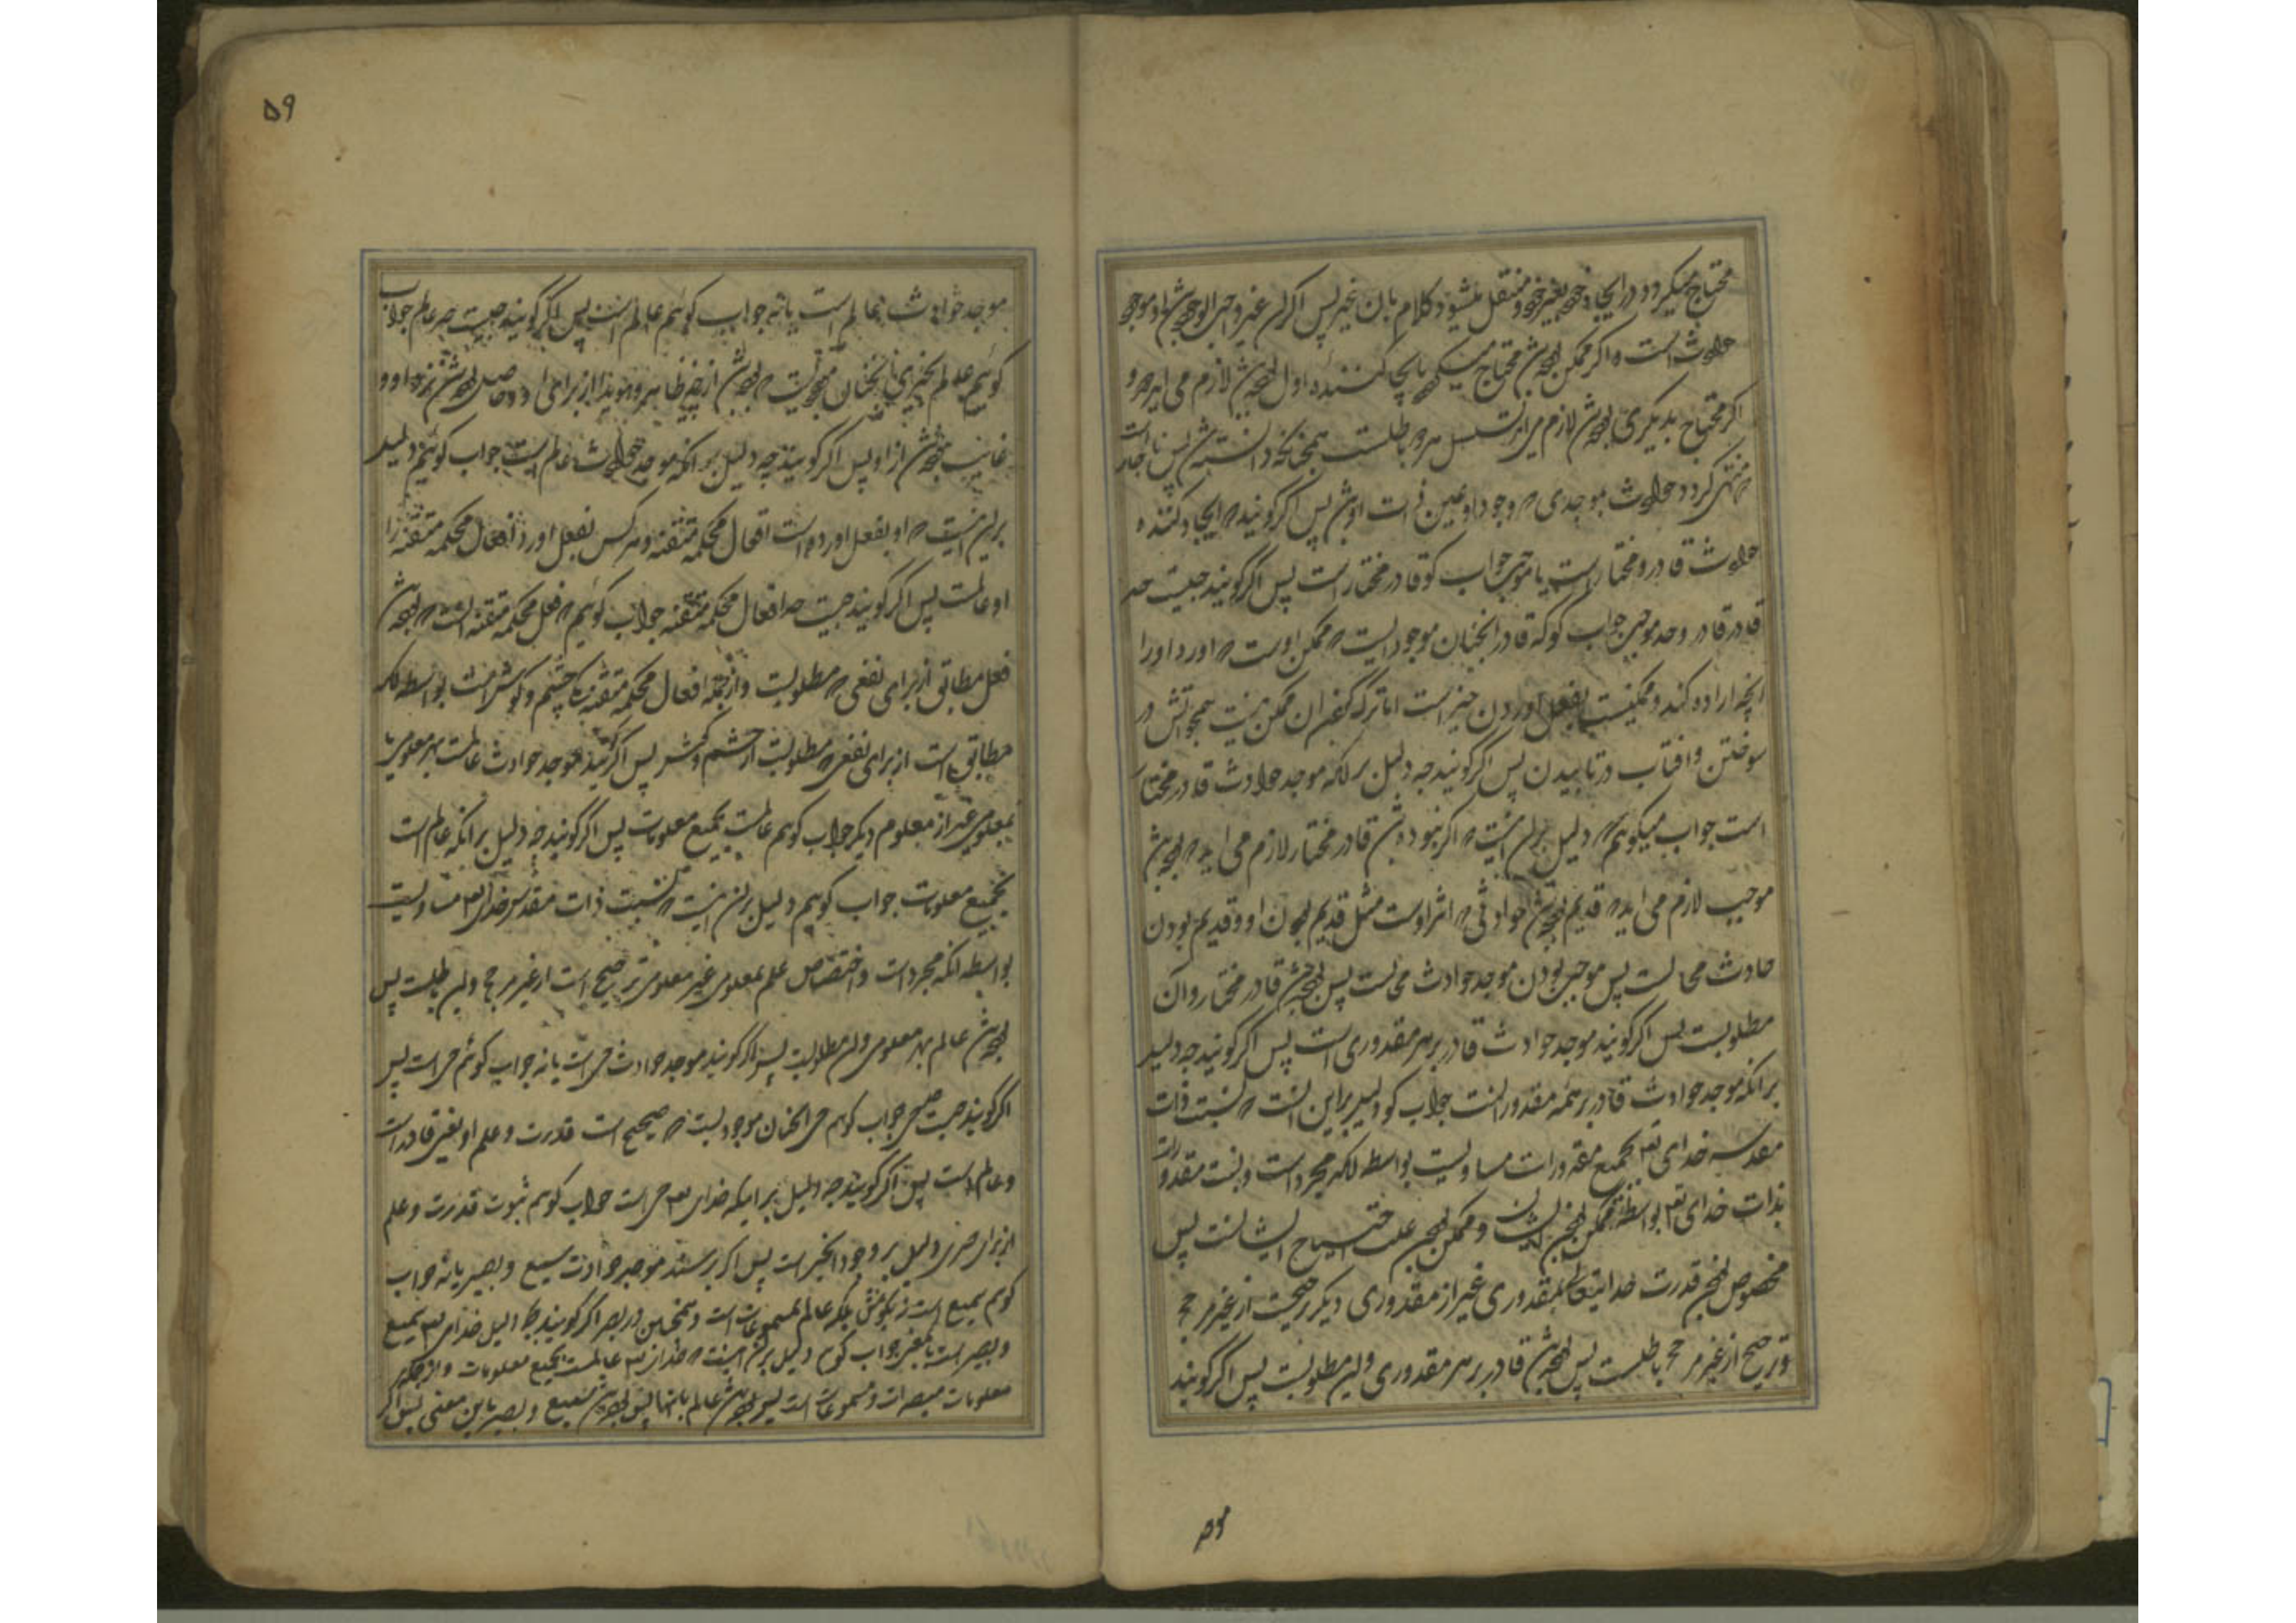 محتاج میکردد در ایجاد خود بغیر خود و منتقل میشود کلام بان غیر پس اکر ان غیر واجب الوجود باشد او موجد
حوادث است و اکر ممکن بوده باشد محتاج میشود بایجاد کننده اول بوده باشد لازم می اید دور و
اکر محتاج بدیکری بوده باشد لازم می اید تسلسل هر دو باطلست همچنانکه دانسته شد پس ناچار است
منتهی کردد حوادث بموجدی که وجود او عین ذات او باشد پس اکر کویند که ایجاد کننده
حوادث قادر و مختار است یا موجب جواب کو قادر مختار است پس اکر کویند چیست حد
قادر و حد موجب جواب کو که قادر انچنان موجودیست که ممکن اوست که اورد او را
انچه اراده کند و ممکنیست بفعل اوردن چیز است اما ترک کفتن ان ممکن نیست همچو اتش در
سوختن و افتاب در تابیدن پس اکر کویند چه دلیل بر انکه موجد حوادث قادر مختار
است جواب میکویم که دلیل بر این اینست که اکر نبوده باشد قادر مختار لازم می اید که بوده باشد
موجب لازم می اید که قدیم بوده باشد حوادثی که اثر اوست مثل قدیم بودن او و قدیم بودن
حادث محالست پس موجب بودن موجد حوادث محالست پس بوده باشد قادر مختار و ان
مطلوبست پس اکر کویند موجد حوادث قادر بر هر مقدوری است پس اکر کویند چه دلیل
بر انکه موجد حوادث قادر بر همه مقدور است جواب کو دلیل بر این انست که نسبت ذات
مقدسه خدای تع بجمیع مقدورات مساویست بواسطه انکه مجرد است و نسبت مقدورات
بذات خدای تع بواسطه ممکن بودن ایشان و ممکن بودن علت احتیاج ایشانست پس
مخصوص بودن قدرت خدایتعالی بمقدوری غیر از مقدوری دیکر ترجیحست از غیر مرجح
و ترجیح از غیر مرجح باطلست پس بوده باشد قادر بر هر مقدوری و این مطلوبست پس اکر کویند
موجد
۵۹
موجد حوادث عالم است یا نه جواب کویم عالم است پس اکر کویند چیست حد عالم جواب
کویم عالم انچیزی انچنان موجودیست که بوده باشد از چیز ظاهر و هویدا از برای او و حاصل بوده باشد نزد او و
غایب نبوده باشد از او پس اکر کویند چه دلیل بر انکه موجد حوادث عالم است جواب کویم دلیل
بر این اینست که او بفعل اورده است افعال محکمه متقنه و هر کس بفعل اورد افعال محکمه متقنه را
او عالمست پس اکر کویند چیست حد افعال محکمه متقنه جواب کویم که فعل محکمه متقنه انست که بوده باشد
فعل مطابق از برای نفعی که مطلوبست و از جمله افعال محکمه متقنه چشم و کوش است بواسطه انکه
مطابق است از برای نفعی که مطلوبست از چشم و کوش پس اکر کویند موجد حوادث عالمست بهر معلومی یا
بمعلومی غیر از معلوم دیکر جواب کویم عالمست بجمیع معلومات پس اکر کویند چه دلیل بر انکه عالم است
بجمیع معلومات جواب کویم دلیل بر این اینست که نسبت ذات مقدس خدای تع مساویست
بواسطه انکه مجرد است و اختصاص علم بمعلومی غیر معلومی ترجیح است از غیر مرجح و این باطلست پس
بوده باشد عالم بهر معلومی و این مطلوبست پس اکر کویند موجد حوادث حی است یا نه جواب کویم حی است پس
اکر کویند چیست حد حی جواب کویم حی انچنان موجودیست که صحیح است قدرت و علم او یعنی قادر است
و عالم است پس اکر کویند چه دلیل بر اینکه خدای تع حی است جواب کویم ثبوت قدرت و علم
از برای دلیل بر وجود انچیز است پس اکر پرسند موجد حوادث سمیع و بصیر یا نه جواب
کویم سمیع است نه بکوش بلکه عالم بمسموعات است و همچنین در بصر اکر کویند چه دلیل خدای تع سمیع
و بصیر است باین معنی جواب کویم دلیل بر این اینست که خدای تع عالمست بجمیع معلومات و از جمله
معلومات مبصرات و مسموعات است پس بوده باشد عالم بانها پس بوده باشد سمیع و بصیر باین معنی پس اکر